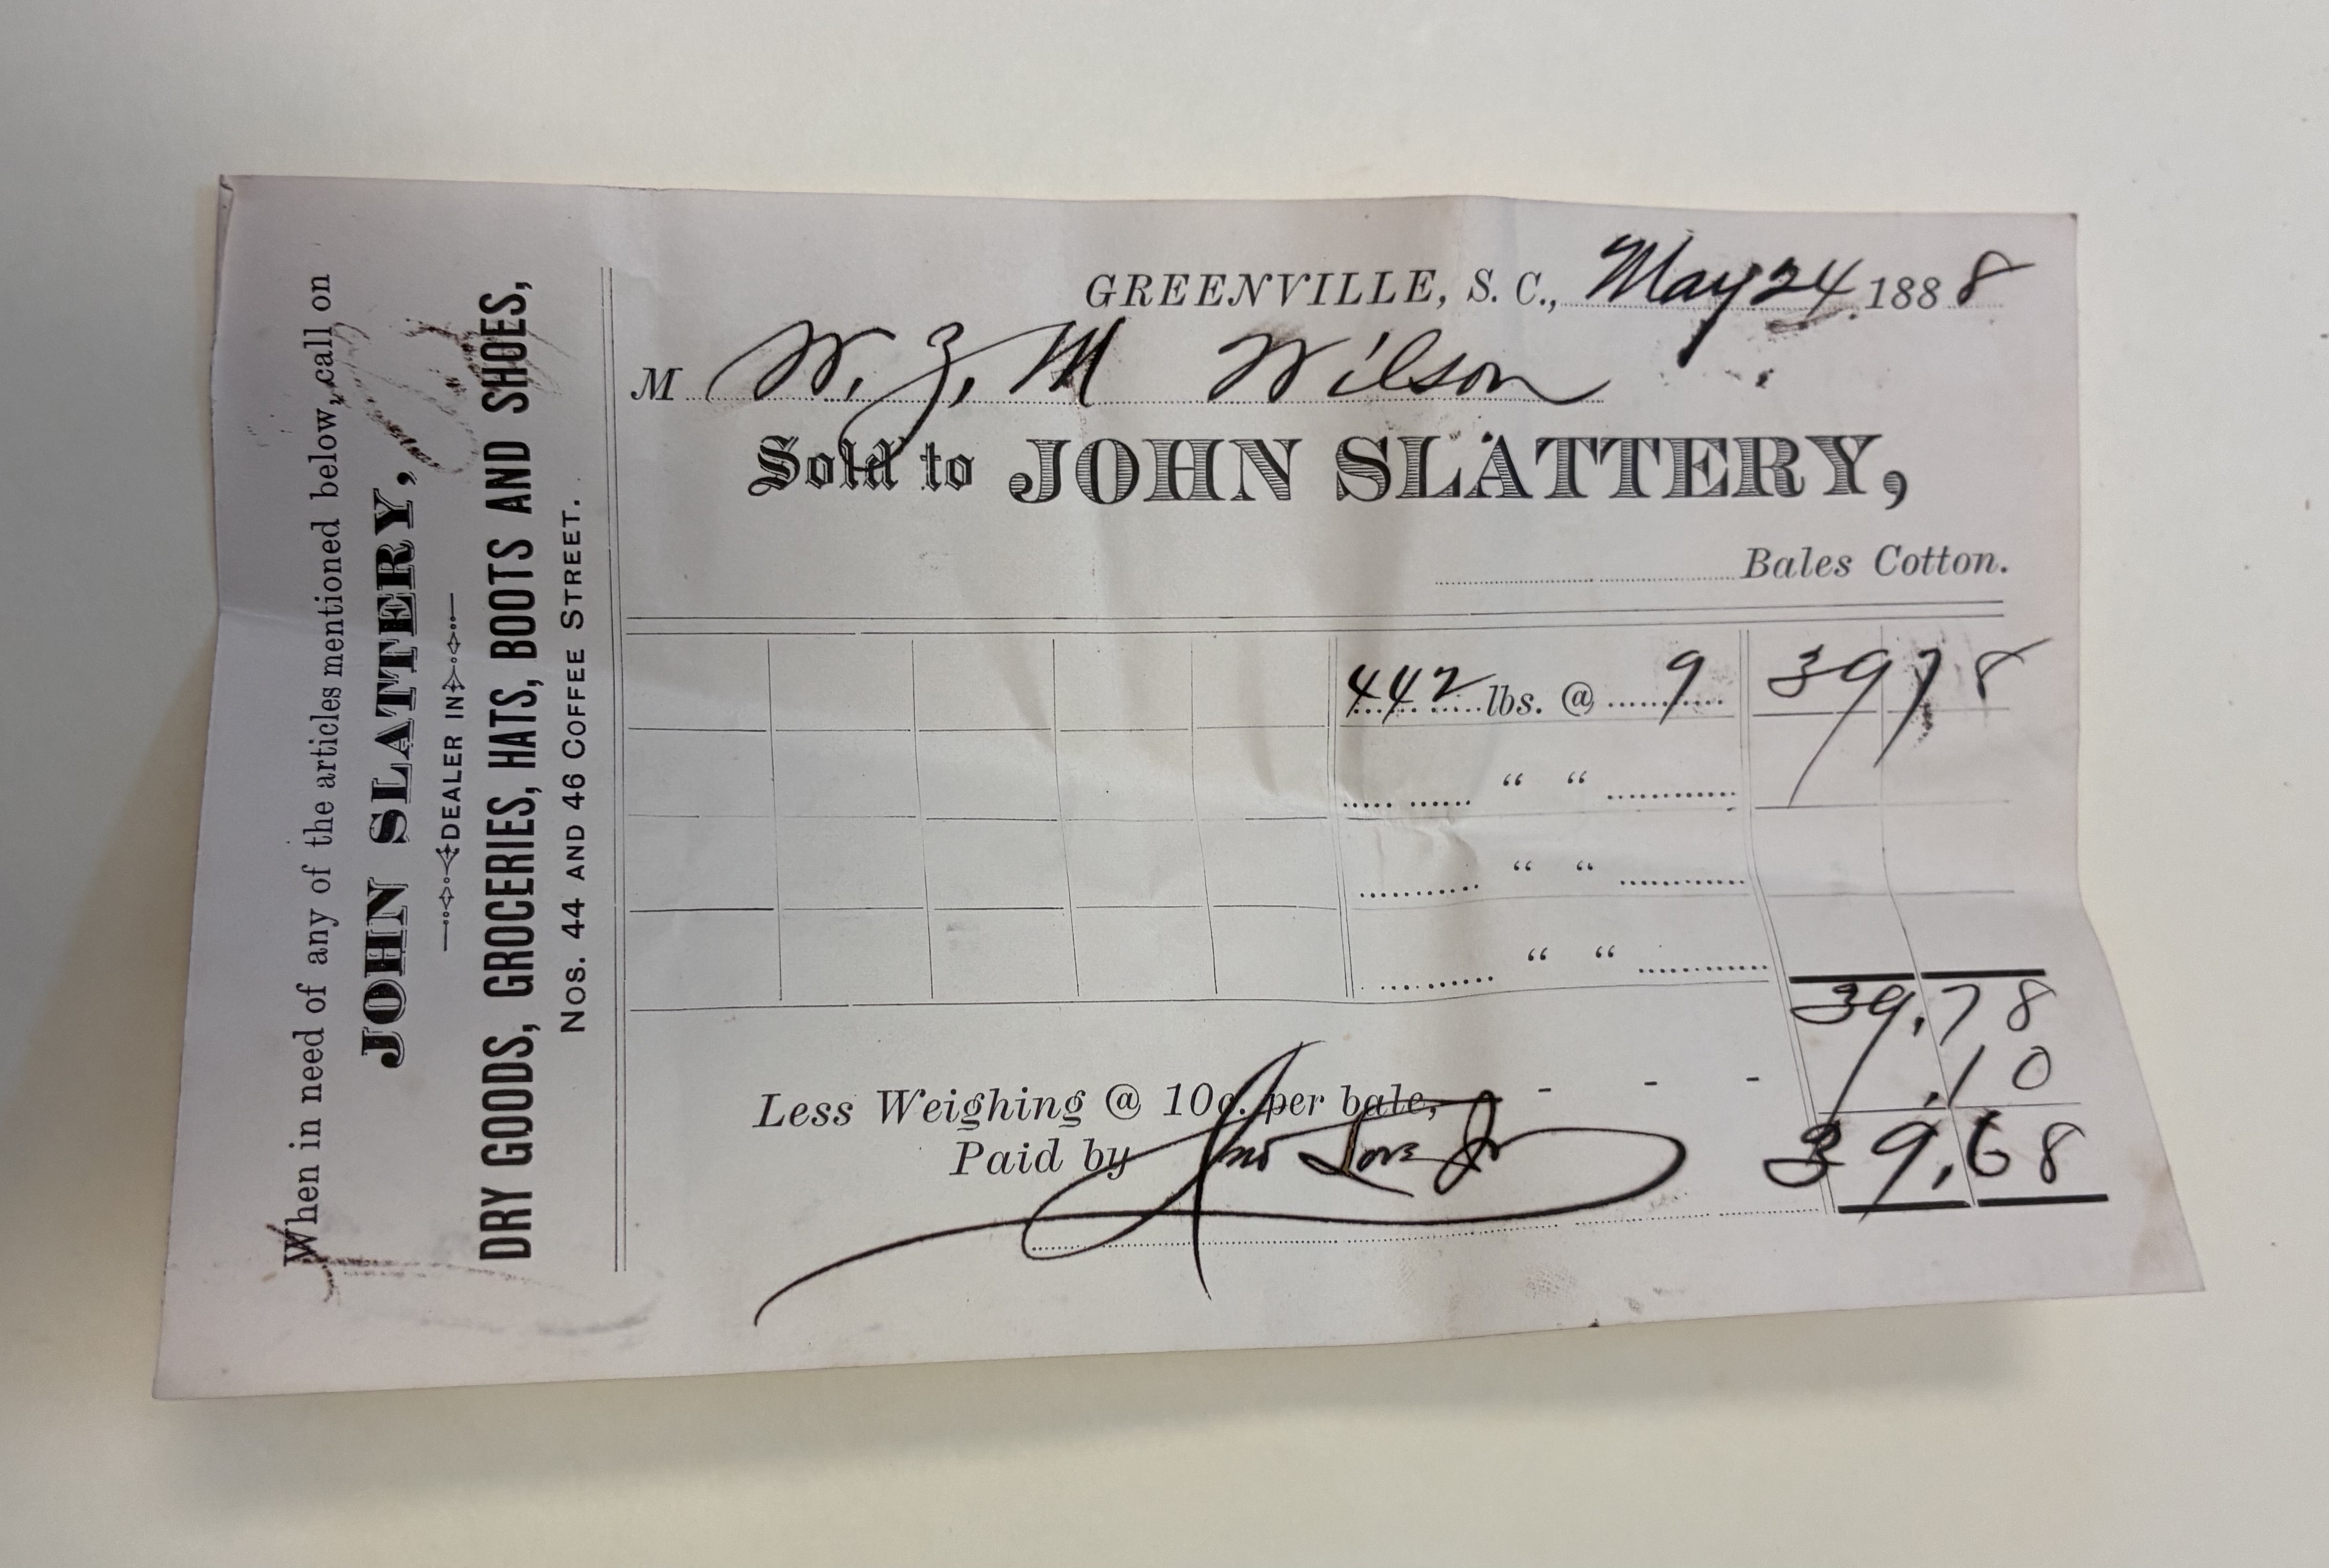 When in need of any of the articles mentioned below, call on
JOHN SLATTERY,
DEALER IN
DRY GOODS, GROCERIES, HATS, BOOTS AND SHOES,
Nos. 44 AND 46 COFFEE STREET.
GREENVILLE, S. C., May 24 1888
M W. Z. M Wilson
Sold to JOHN SLATTERY,
Bales Cotton.
442 lbs. @ 9 39 78
" "
" "
" "
39.78
Less Weighing @ 10c. per bale, - - - .10
Paid by Jno Love Jr 39.68